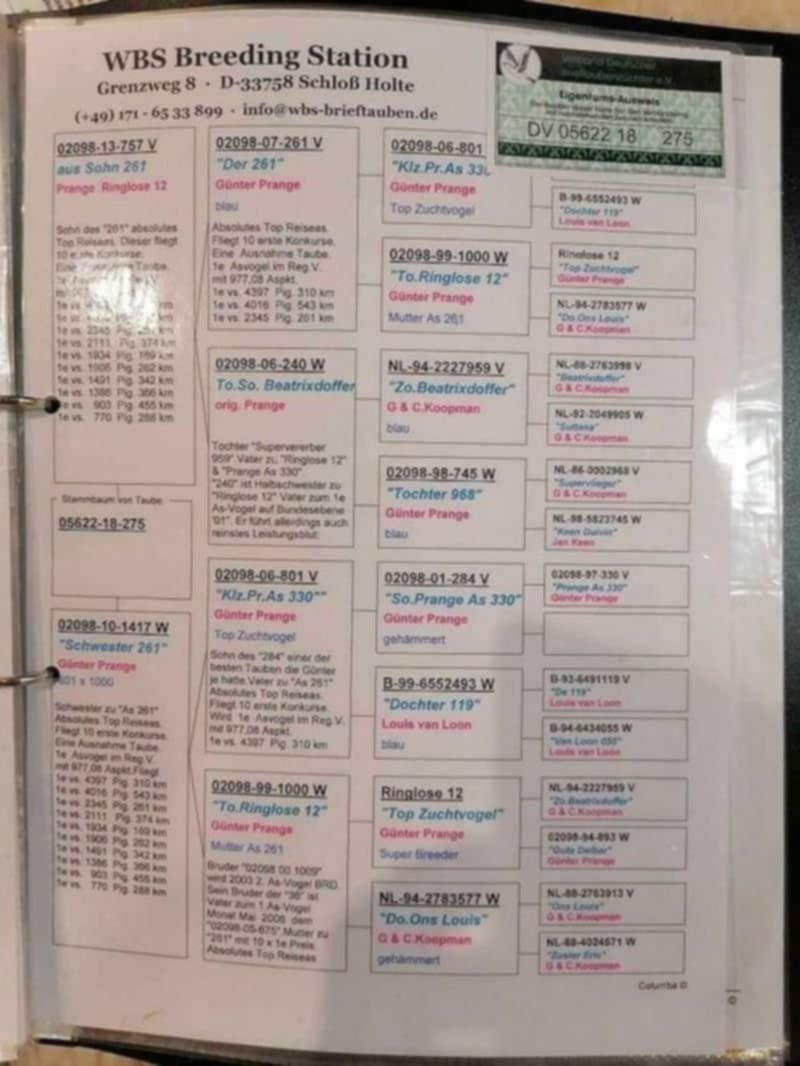 WBS Breeding Station
Grenzweg 8 · D-33758 Schloß Holte
(+49) 171 - 65 33 899 · info@wbs-brieftauben.de
Verband Deutscher
Brieftaubenzüchter e.V.
Eigentums-Ausweis
DV 05622 18 275
02098-13-757 V
aus Sohn 261
Prange Ringlose 12
Sohn des "261" absolutes
Top Reiseas. Dieser fliegt
10 erste Konkurse.
Eine Ausnahme Taube.
1e vs. 2345 Pig.
1e vs. 2111 Pig. 374 km
1e vs. 1934 Pig. 169 km
1e vs. 1906 Pig. 262 km
1e vs. 1491 Pig. 342 km
1e vs. 1386 Pig. 366 km
1e vs. 903 Pig. 455 km
1e vs. 770 Pig. 288 km
Stammbaum von Taube
05622-18-275
02098-10-1417 W
"Schwester 261"
Günter Prange
801 x 1000
Schwester zu "As 261"
Absolutes Top Reiseas.
Fliegt 10 erste Konkurse.
Eine Ausnahme Taube.
1e Asvogel im Reg.V.
mit 977,08 Aspkt.Fliegt
1e vs. 4397 Pig. 310 km
1e vs. 4016 Pig. 543 km
1e vs. 2345 Pig. 261 km
1e vs. 2111 Pig. 374 km
1e vs. 1934 Pig. 169 km
1e vs. 1906 Pig. 262 km
1e vs. 1491 Pig. 342 km
1e vs. 1386 Pig. 366 km
1e vs. 903 Pig. 455 km
1e vs. 770 Pig. 288 km
02098-07-261 V
"Der 261"
Günter Prange
blau
Absolutes Top Reiseas.
Fliegt 10 erste Konkurse.
Eine Ausnahme Taube.
1e Asvogel im Reg.V.
mit 977,08 Aspkt.
1e vs. 4397 Pig. 310 km
1e vs. 4016 Pig. 543 km
1e vs. 2345 Pig. 261 km
02098-06-240 W
To.So. Beatrixdoffer
orig. Prange
Tochter "Supervererber
959".Vater zu "Ringlose 12"
& "Prange As 330"
"240" ist Halbschwester zu
"Ringlose 12" Vater zum 1e
As-Vogel auf Bundesebene
"01". Er führt allerdings auch
reinstes Leistungsblut.
02098-06-801 V
"Klz.Pr.As 330""
Günter Prange
Top Zuchtvogel
Sohn des "284" einer der
besten Tauben die Günter
je hatte.Vater zu "As 261"
Absolutes Top Reiseas.
Fliegt 10 erste Konkurse.
Wird 1e Asvogel im Reg.V.
mit 977,08 Aspkt.
1e vs. 4397 Pig. 310 km
02098-99-1000 W
"To.Ringlose 12"
Günter Prange
Mutter As 261
Bruder "02098 00 1009"
wird 2003 2. As-Vogel BRD.
Sein Bruder der "36" ist
Vater zum 1.As-Vogel
Monat Mai 2006 dem
"02098-05-675".Mutter zu
"261" mit 10 x 1e Preis.
Absolutes Top Reiseas
02098-06-801
"Klz.Pr.As 330
Günter Prange
Top Zuchtvogel
02098-99-1000 W
"To.Ringlose 12"
Günter Prange
Mutter As 261
NL-94-2227959 V
"Zo.Beatrixdoffer"
G & C.Koopman
blau
02098-98-745 W
"Tochter 968"
Günter Prange
blau
02098-01-284 V
"So.Prange As 330"
Günter Prange
gehämmert
B-99-6552493 W
"Dochter 119"
Louis van Loon
blau
Ringlose 12
"Top Zuchtvogel"
Günter Prange
Super Breeder
NL-94-2783577 W
"Do.Ons Louis"
G & C.Koopman
gehämmert
B-99-6552493 W
"Dochter 119"
Louis van Loon
Ringlose 12
"Top Zuchtvogel"
Günter Prange
NL-94-2783577 W
"Do.Ons Louis"
G & C.Koopman
NL-88-2763998 V
"Beatrixdoffer"
G & C.Koopman
NL-92-2049905 W
"Sultana"
G & C.Koopman
NL-86-0002968 V
"Supervlieger"
G & C.Koopman
NL-98-5823745 W
"Keen Duivin"
Jan Keen
02098-97-330 V
"Prange As 330"
Günter Prange
B-93-6491119 V
"De 119"
Louis van Loon
B-94-6434055 W
"Van Loon 055"
Louis van Loon
NL-94-2227959 V
"Zo.Beatrixdoffer"
G & C.Koopman
02098-94-893 W
"Gute Delbar"
Günter Prange
NL-88-2763913 V
"Ons Louis"
G & C.Koopman
NL-88-4024671 W
"Zuster Eric"
G & C.Koopman
Columba ©
©